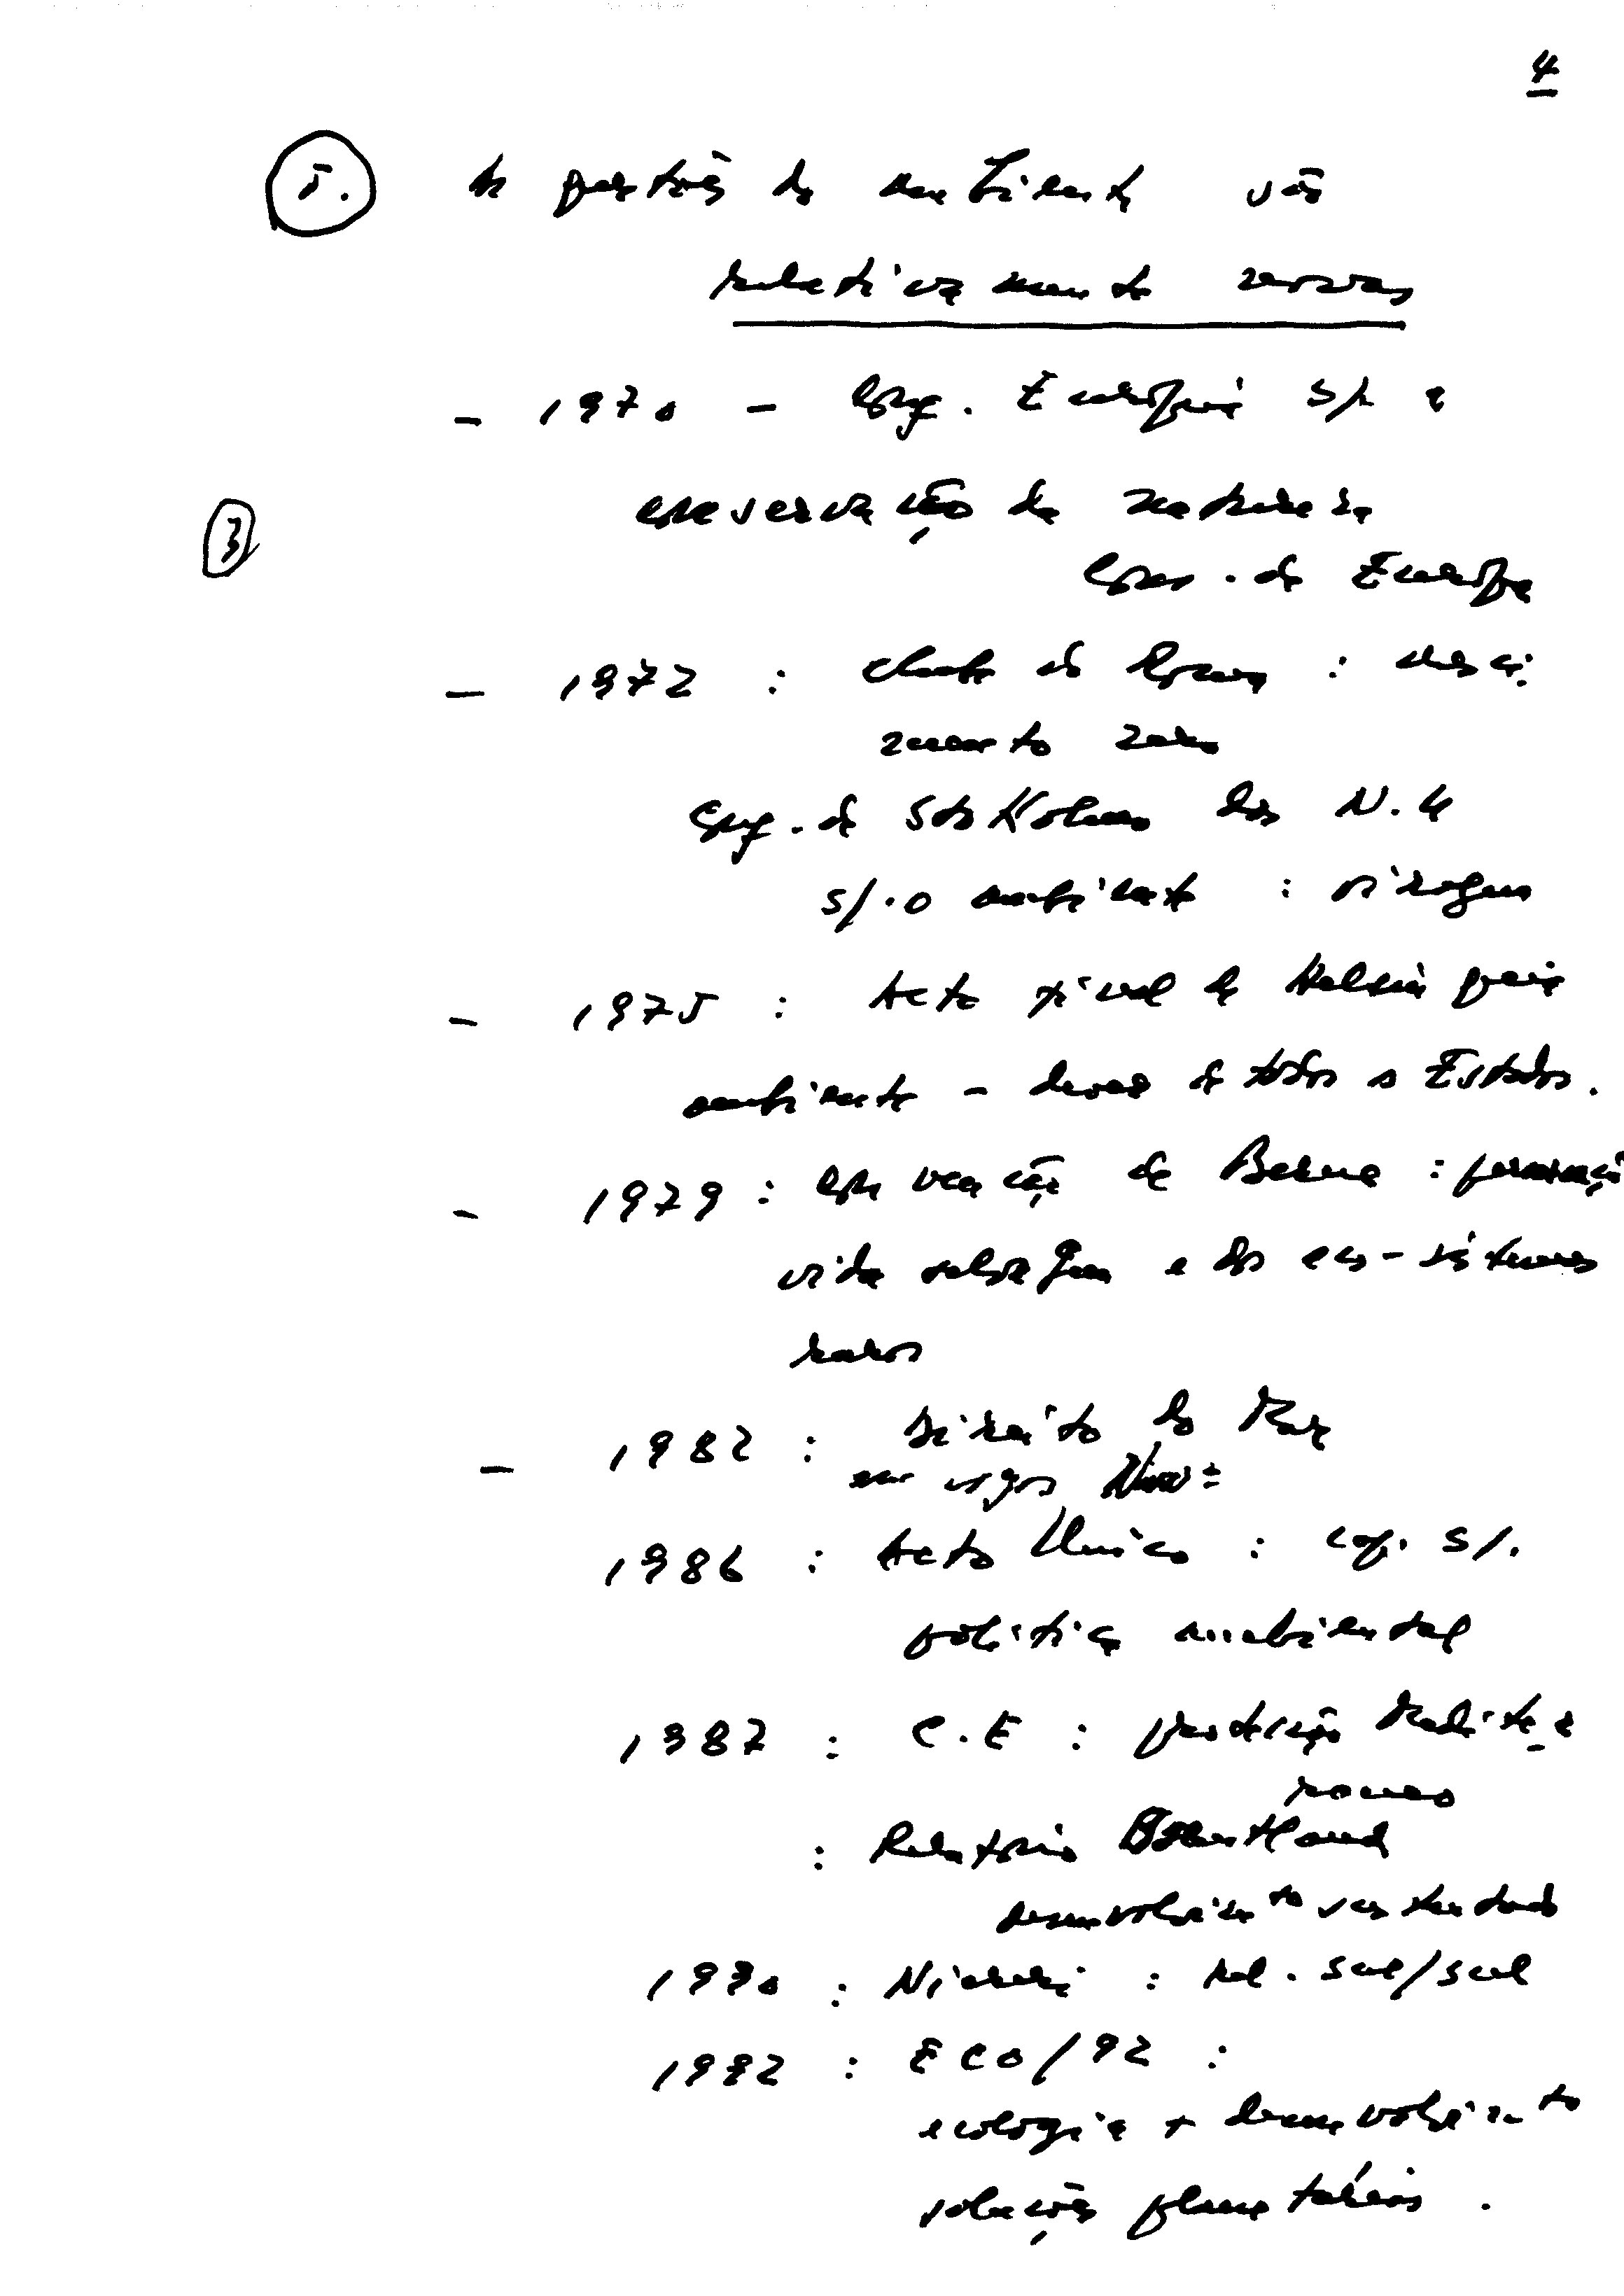 4
5. As questões do ambiente são
relativamente novas
- 1970 - Conf. Europeia s/ a
conservação da natureza
3
Cons. da Europa
- 1972 : Clube de Roma : cresci-
mento zero
Conf. de Stokolmo das N. U
s/. o ambiente :
- 1975 : Acto final de Helsínquia
ambiente - dever de todos os Estados.
- 1979 : Convenção de Berna :
vida selvagem e dos eco-sistemas
raros
- 1982 : Direito do Mar
em vigor Nov:
1986 : Acto Único : cap. s/.
política ambiental
1987 : C.E : protecção Medite-
râneo
: Relatório Bruntland
desenvolvimento sustentado
1990 : Nairobi : rel. sul/sul
1992 : ECO/92 :
ecologia + desenvolvimento
soluções planetárias.